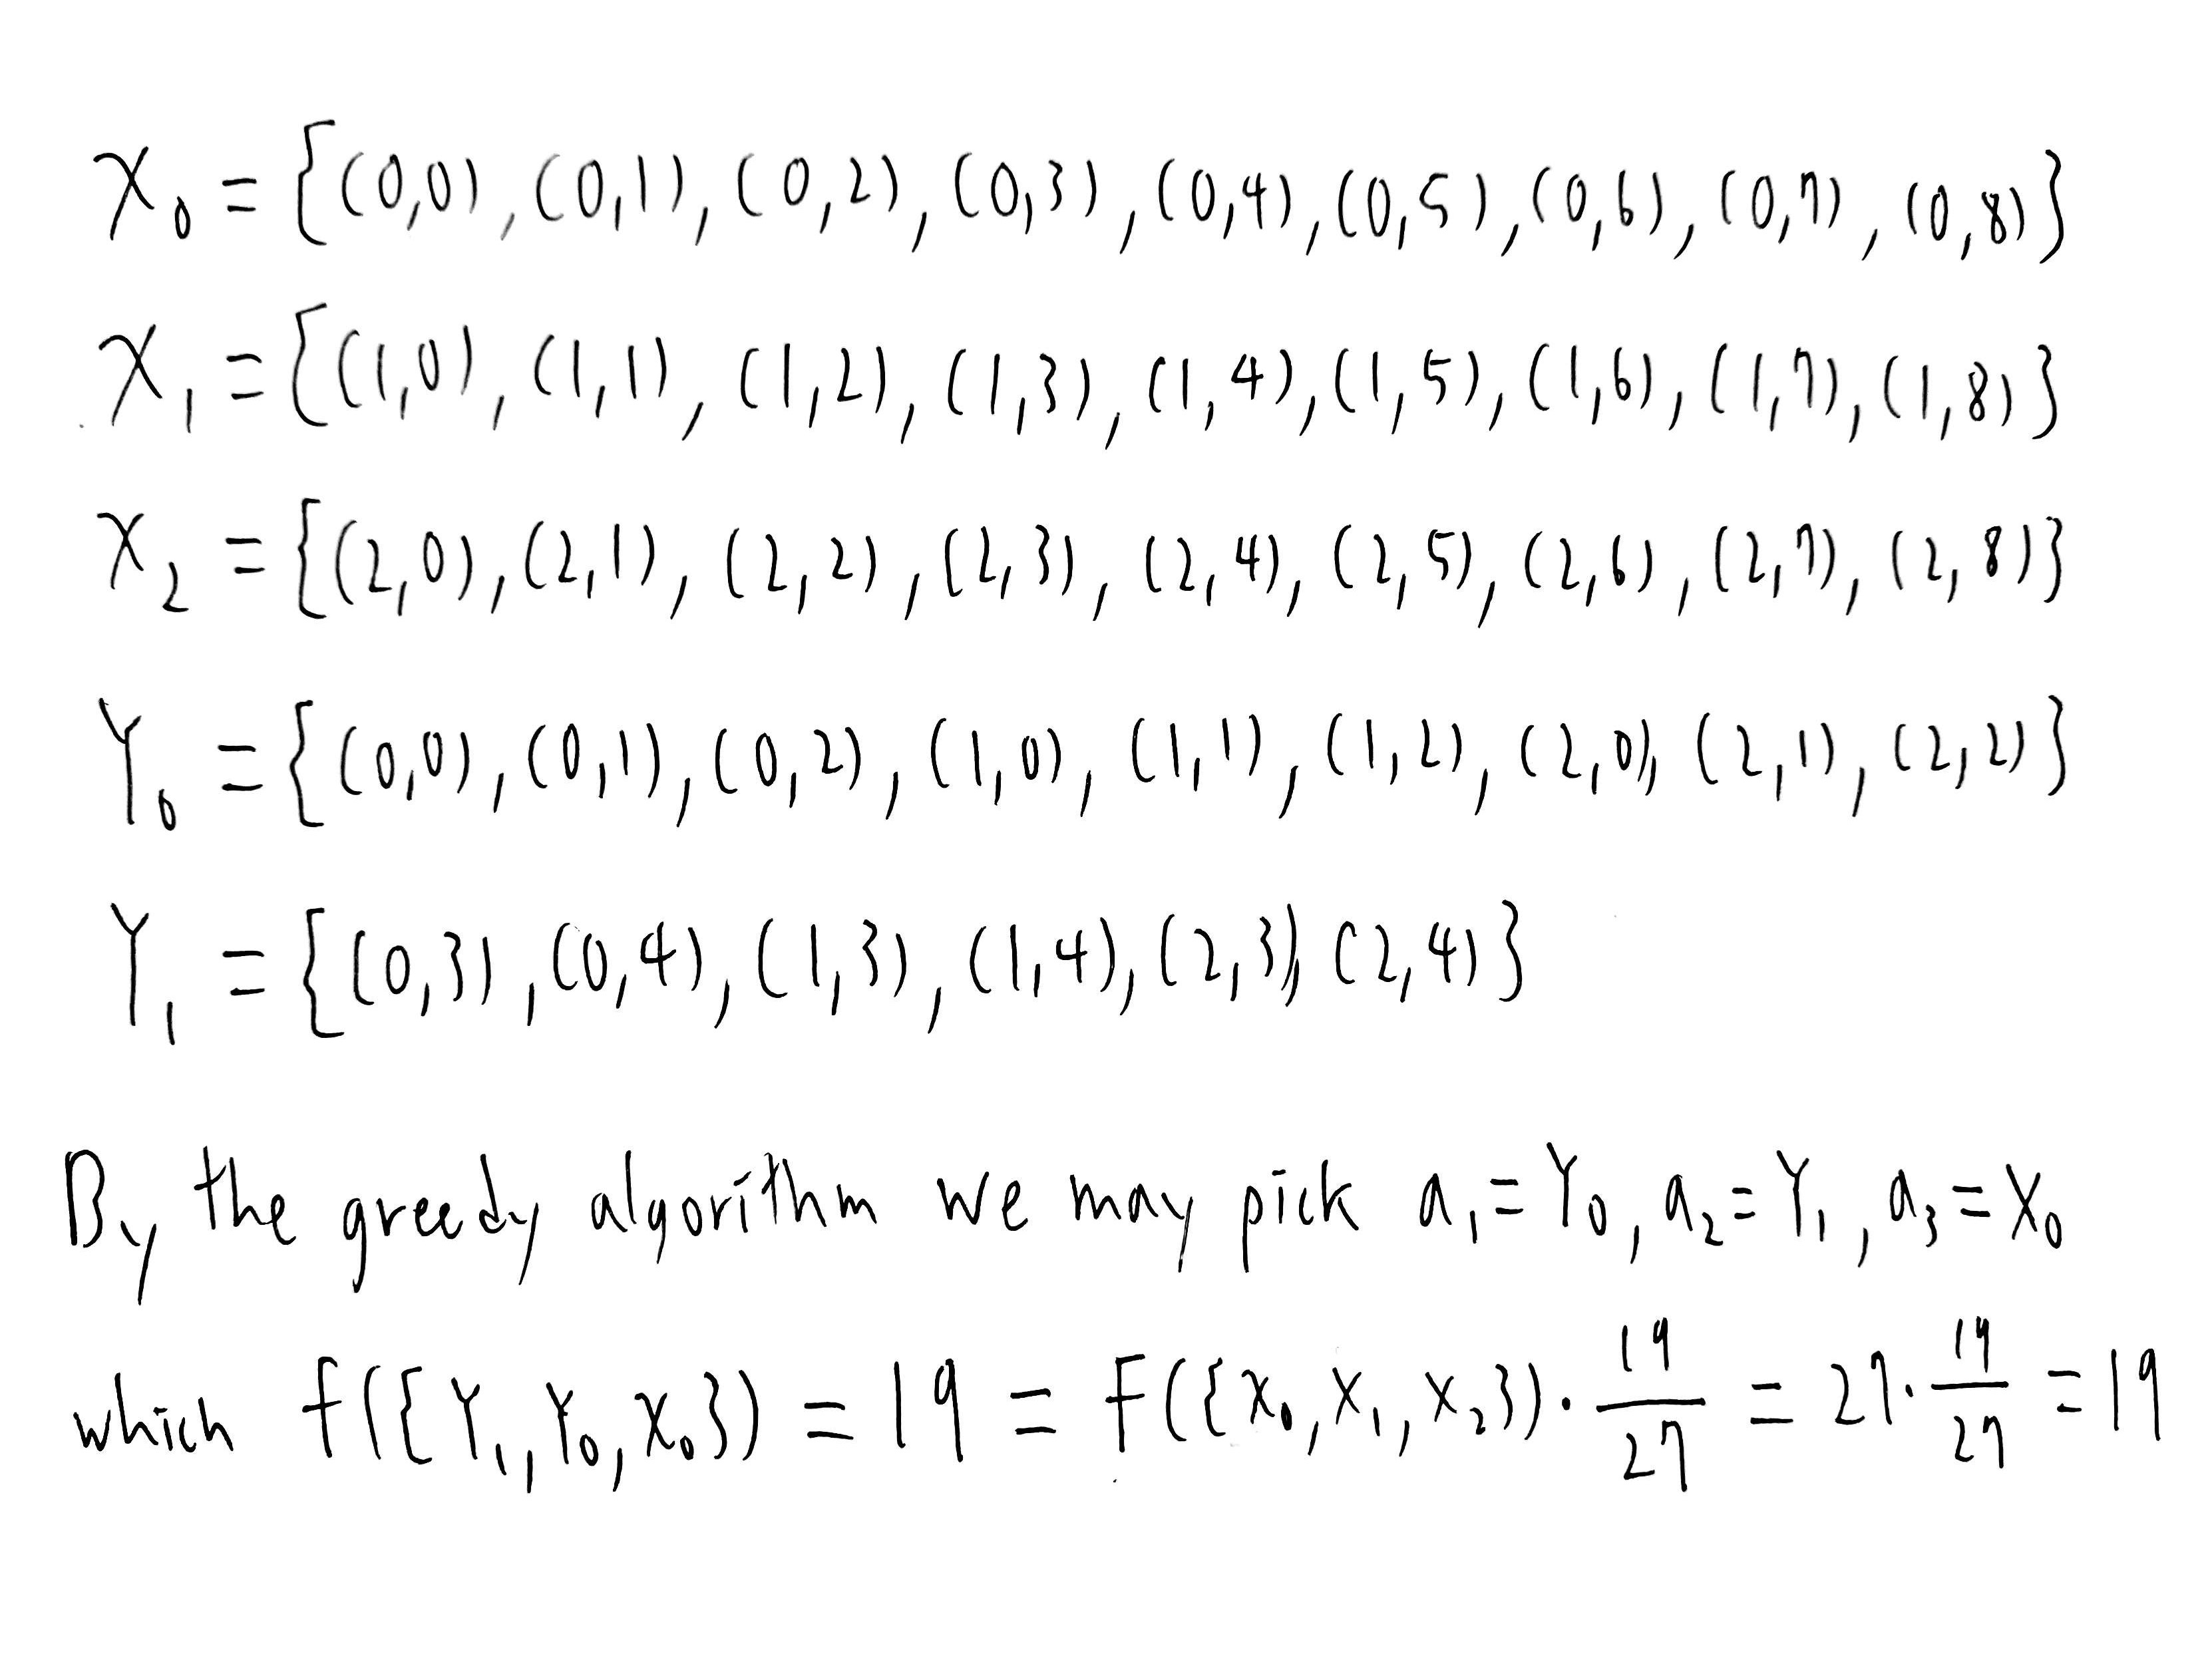 X₀ = {(0,0), (0,1), (0,2), (0,3), (0,4), (0,5), (0,6), (0,7), (0,8)}
X₁ = {(1,0), (1,1), (1,2), (1,3), (1,4), (1,5), (1,6), (1,7), (1,8)}
X₂ = {(2,0), (2,1), (2,2), (2,3), (2,4), (2,5), (2,6), (2,7), (2,8)}
Y₀ = {(0,0), (0,1), (0,2), (1,0), (1,1), (1,2), (2,0), (2,1), (2,2)}
Y₁ = {(0,3), (0,4), (1,3), (1,4), (2,3), (2,4)}
By the greedy algorithm we may pick a₁=Y₀, a₂=Y₁, a₃=X₀
which f({Y₁, Y₀, X₀}) = 19 = F({X₀, X₁, X₂}) · 19/27 = 27 · 19/27 = 19